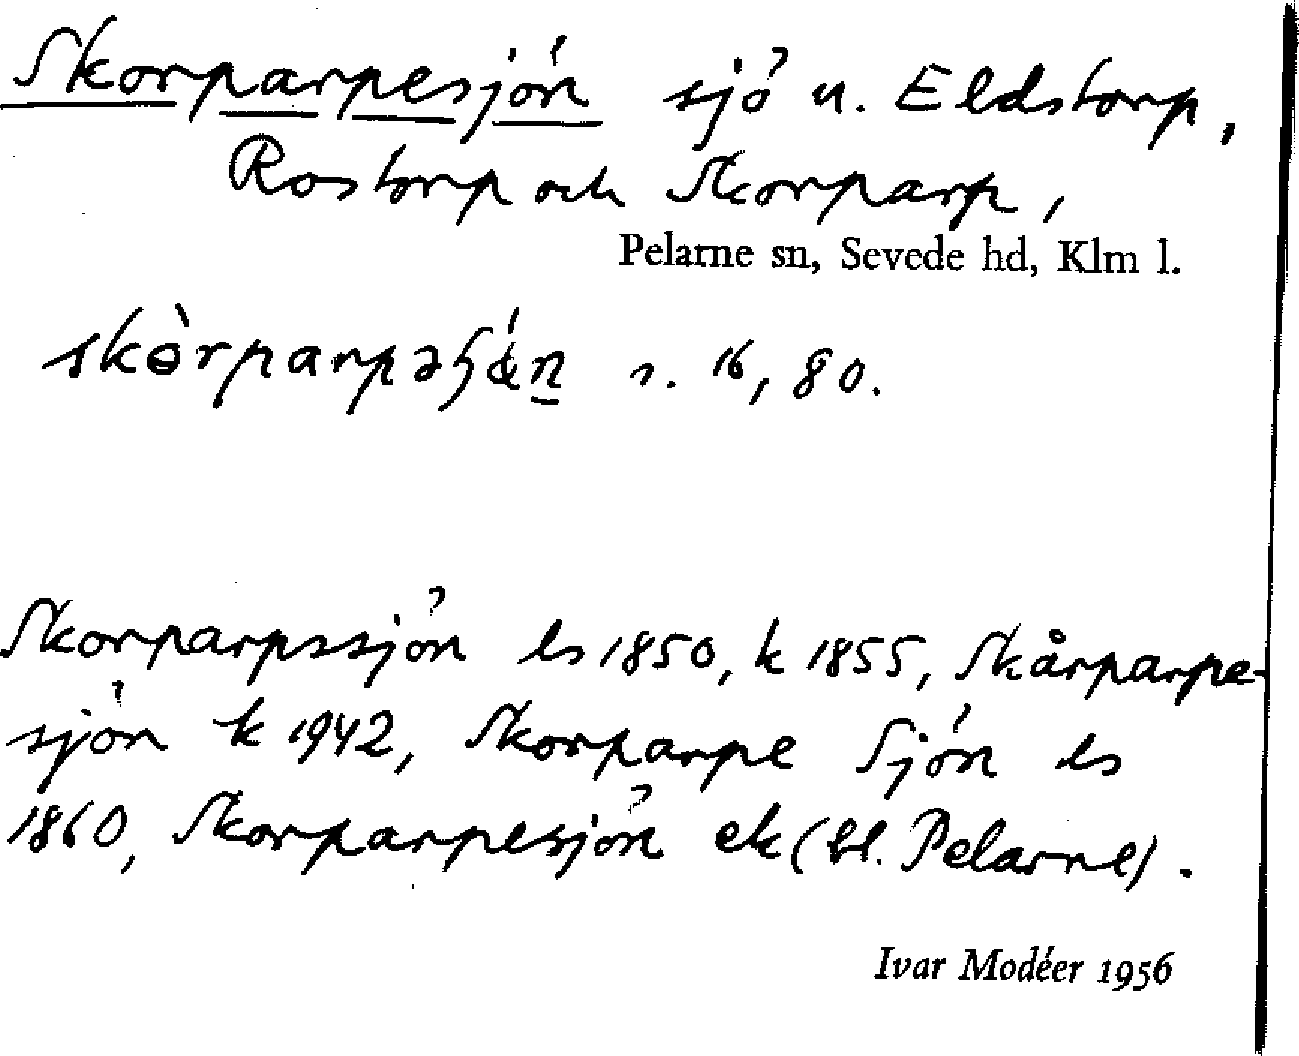 Skorparpesjön sjö n. Eldstorp,
Rostorp och Skorparp,
Pelarne sn, Sevede hd, Klm l.
s. 16, 80.
Skorparpssjön ls 1850, k 1855, Skårparpe-
sjön k 1942, Skorparpe Sjön ls
1860, Skorparpesjön ek (bl. Pelarne).
Ivar Modéer 1956